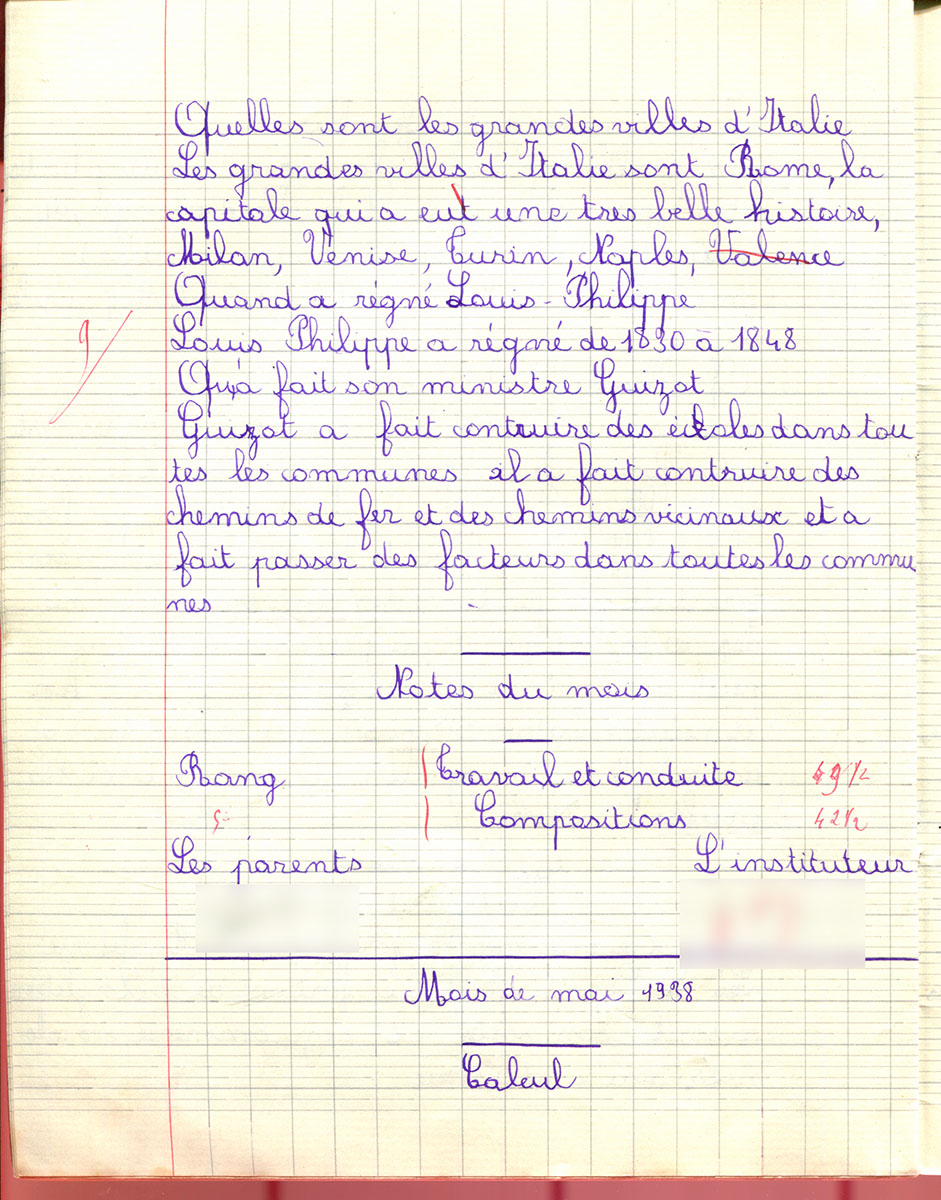 Quelles sont les grandes villes d'Italie
Les grandes villes d'Italie sont Rome, la
capitale qui a eut une tres belle histoire,
Milan, Venise, Turin, Naples, Valence
Quand a régné Louis-Philippe
Louis Philippe a régné de 1830 à 1848
9
Qu'a fait son ministre Guizot
Guizot a fait contruire des écoles dans tou
tes les communes il a fait contruire des
chemins de fer et des chemins vicinaux et a
fait passer des facteurs dans toutes les commu
nes
Notes du mois
Rang Travail et conduite 49 1/2
Compositions 42 1/2
Les parents L'instituteur
Mois de mai 1938
Calcul